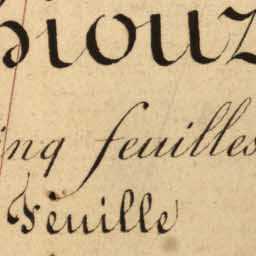 inq feuilles
Feuille